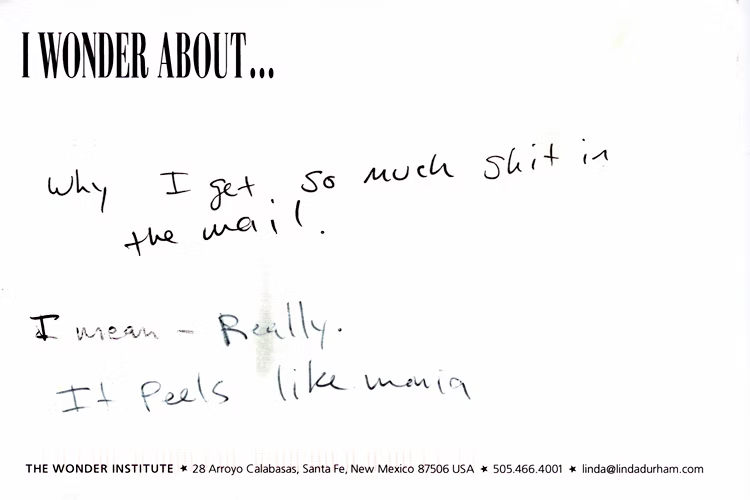 I WONDER ABOUT...
Why I get so much shit in
the mail.
I mean – Really.
It feels like mania
THE WONDER INSTITUTE ★ 28 Arroyo Calabasas, Santa Fe, New Mexico 87506 USA ★ 505.466.4001 ★ linda@lindadurham.com